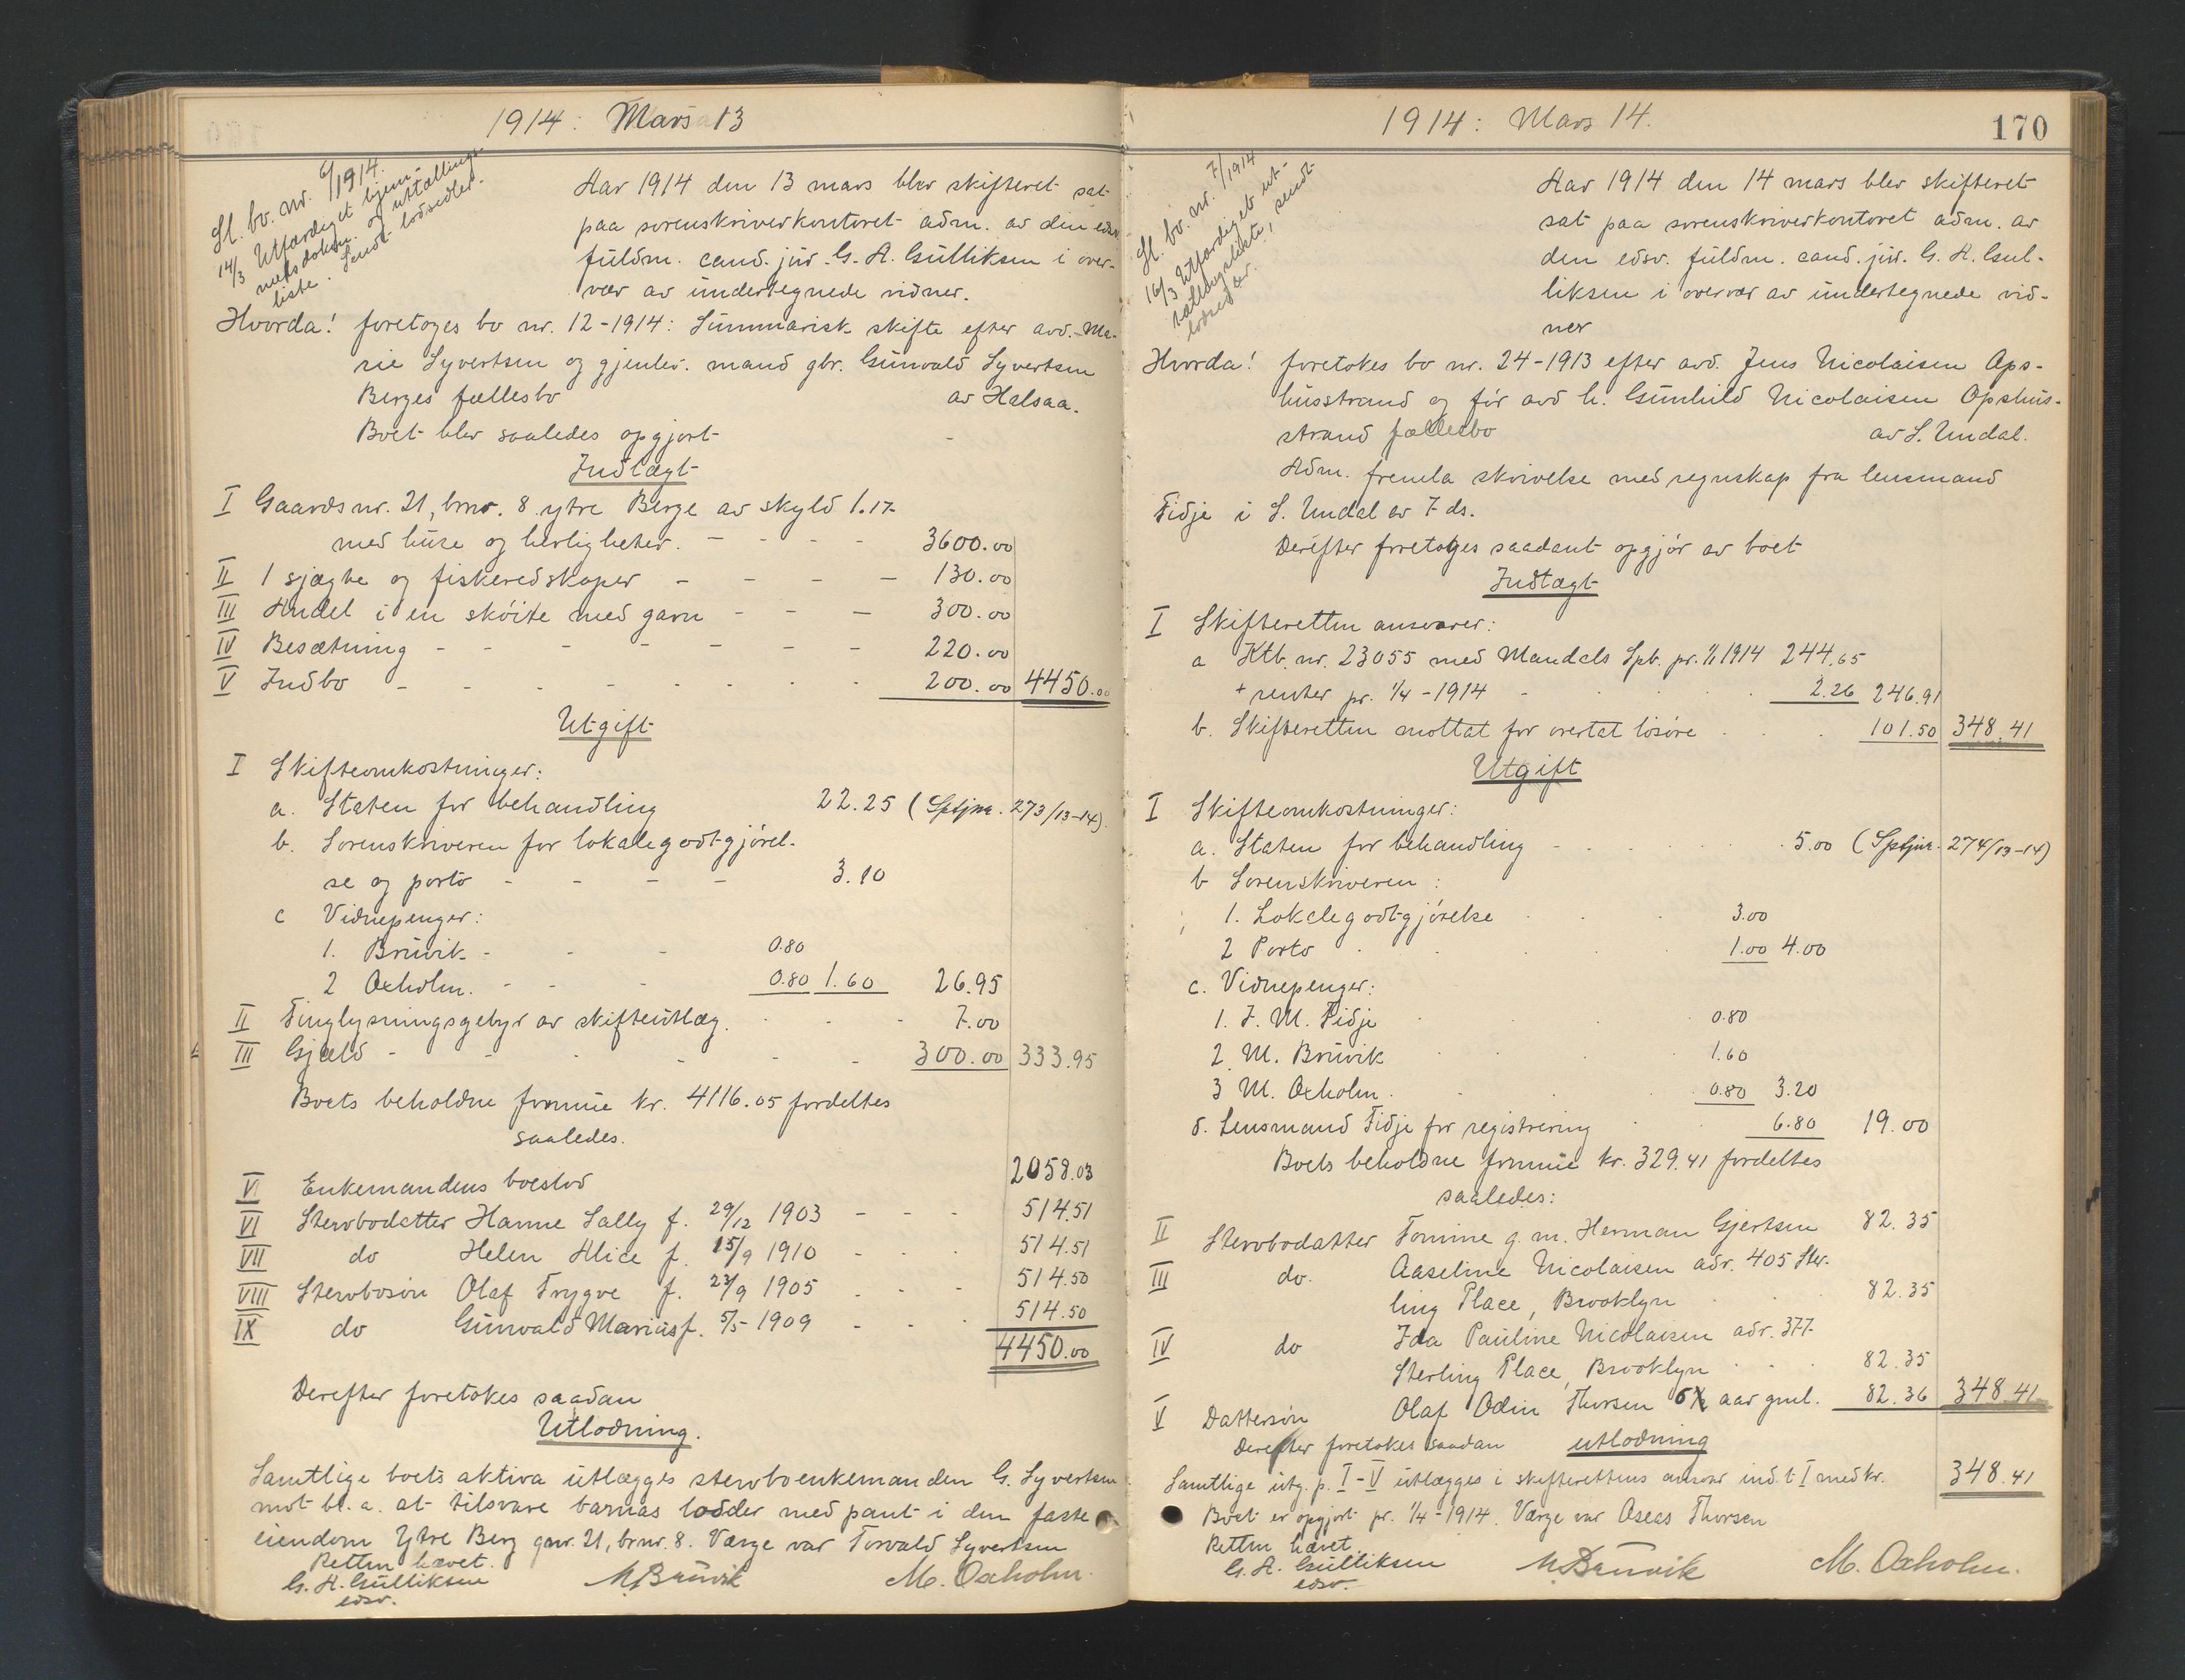 1914: Mars 13
Sl. bo. nr. 6/1914.
14/3 Utfærdiget hjem-
melsdokum. og uttællings-
liste. Sendt lodsedler.
Aar 1914 den 13 mars blev skifteret sat
paa sorenskriverkontoret adm. av den edsv.
fuldm. cand. jur. G. A. Gulliksen i over-
vær av undertegnede vidner.
Hvorda! foretoges bo nr. 12-1914: Summarisk skifte efter avd. Ma-
rie Syvertsen og gjenlev. mand gbr. Gunvald Syvertsen
Berges fællesbo av Halsaa.
Boet blev saaledes opgjort
Indtægt
I Gaards nr. 21, brnr. 8 ytre Berge av skyld 1.17
med huse og herligheter. - - - - 3600.00
II 1 sjægte og fiskeredskaper - - - - 130.00
III Andel i en skøite med garn - - - 300.00
IV Besætning - - - - - - - 220.00
V Indbo - - - - - - - 200.00 4450.00
Utgift
I Skifteomkostninger:
a. Staten for behandling 22.25 (Sptjnr. 273/13-14).
b. Sorenskriveren for lokalegodtgjørel-
se og porto - - - - 3.10
c Vidnepenger:
1. Bruvik - - - 0.80
2 Oxholm. - - - 0.80 1.60 26.95
II Tinglysningsgebyr av skifteutlæg. - - - 7.00
III Gjæld - - - - - - 300.00 333.95
Boets beholdne formue kr. 4116.05 fordeltes
saaledes.
VI Enkemandens boeslod 2058.03
VI Stervbodatter Hanne Sally f. 29/12 1903 - - - 514.51
VII do Helen Alice f. 15/9 1910 - - - 514.51
VIII Stervbosøn Olaf Trygve f. 23/9 1905 - - - 514.50
IX do Gunvald Marius f. 5/5 1909 - - - 514.50
4450.00
Derefter foretokes saadan
Utlodning.
Samtlige boets aktiva utlægges stervboenkemanden G. Syvertsen
mot bl. a. at tilsvare barnas lodder med pant i den faste
eiendom Ytre Berg gnr. 21, brnr. 8. Værge var Torvald Syvertsen
Retten hævet.
G. A. Gulliksen M. Bruvik M. Oxholm.
edsv.
1914: Mars 14.
170
Sl. bo. nr. 7/1914
16/3 Utfærdiget ut-
tællingsliste, sendt
lodsedler.
Aar 1914 den 14 mars blev skifteret
sat paa sorenskriverkontoret adm. av
den edsv. fuldm. cand. jur. G. A. Gul-
liksen i overvær av undertegnede vid-
ner
Hvorda! foretokes bo nr. 24-1913 efter avd. Jens Nicolaisen Ops-
husstrand og før avd h. Gunhild Nicolaisen Opshus-
strand fællesbo av S. Undal.
Adm. fremla skrivelse med regnskap fra lensmand
Fidje i S. Undal av 7 ds.
Derefter foretoges saadant opgjør av boet
Indtægt
I Skifteretten ansvarer:
a Ktb. nr. 23055 med Mandals Spb. pr. 1/1 1914 244.65
+ renter pr. 1/4-1914 - 2.26 246.91
b. Skifteretten mottat for overtat løsøre 101.50 348.41
Utgift
I Skifteomkostninger:
a. Staten for behandling 5.00 (Sptjnr. 274/13-14)
b Sorenskriveren:
1. Lokalegodtgjørelse 3.00
2 Porto 1.00 4.00
c. Vidnepenger:
1. J. M. Fidje 0.80
2. M. Bruvik 1.60
3 M. Oxholm. 0.80 3.20
d. Lensmand Fidje for registrering 6.80 19.00
Boets beholdne formue kr. 329.41 fordeltes
saaledes:
II Stervbodatter Tomine g. m. Herman Gjertsen 82.35
III do. Aaseline Nicolaisen adr. 405 Ster-
ling Place, Brooklyn 82.35
IV do Ida Pauline Nicolaisen adr. 377
Sterling Place, Brooklyn 82.35
V Dattersøn Olaf Odin Thorsen aar gml. 82.36 348.41
Derefter foretokes saadan utlodning
Samtlige utg. p. I-V utlægges i skifterettens ansvar ind. t I med kr. 348.41
Boet er opgjort pr. 1/4-1914. Værge var Oseas Thorsen
Retten hævet.
G. A. Gulliksen M. Bruvik M. Oxholm.
edsv.